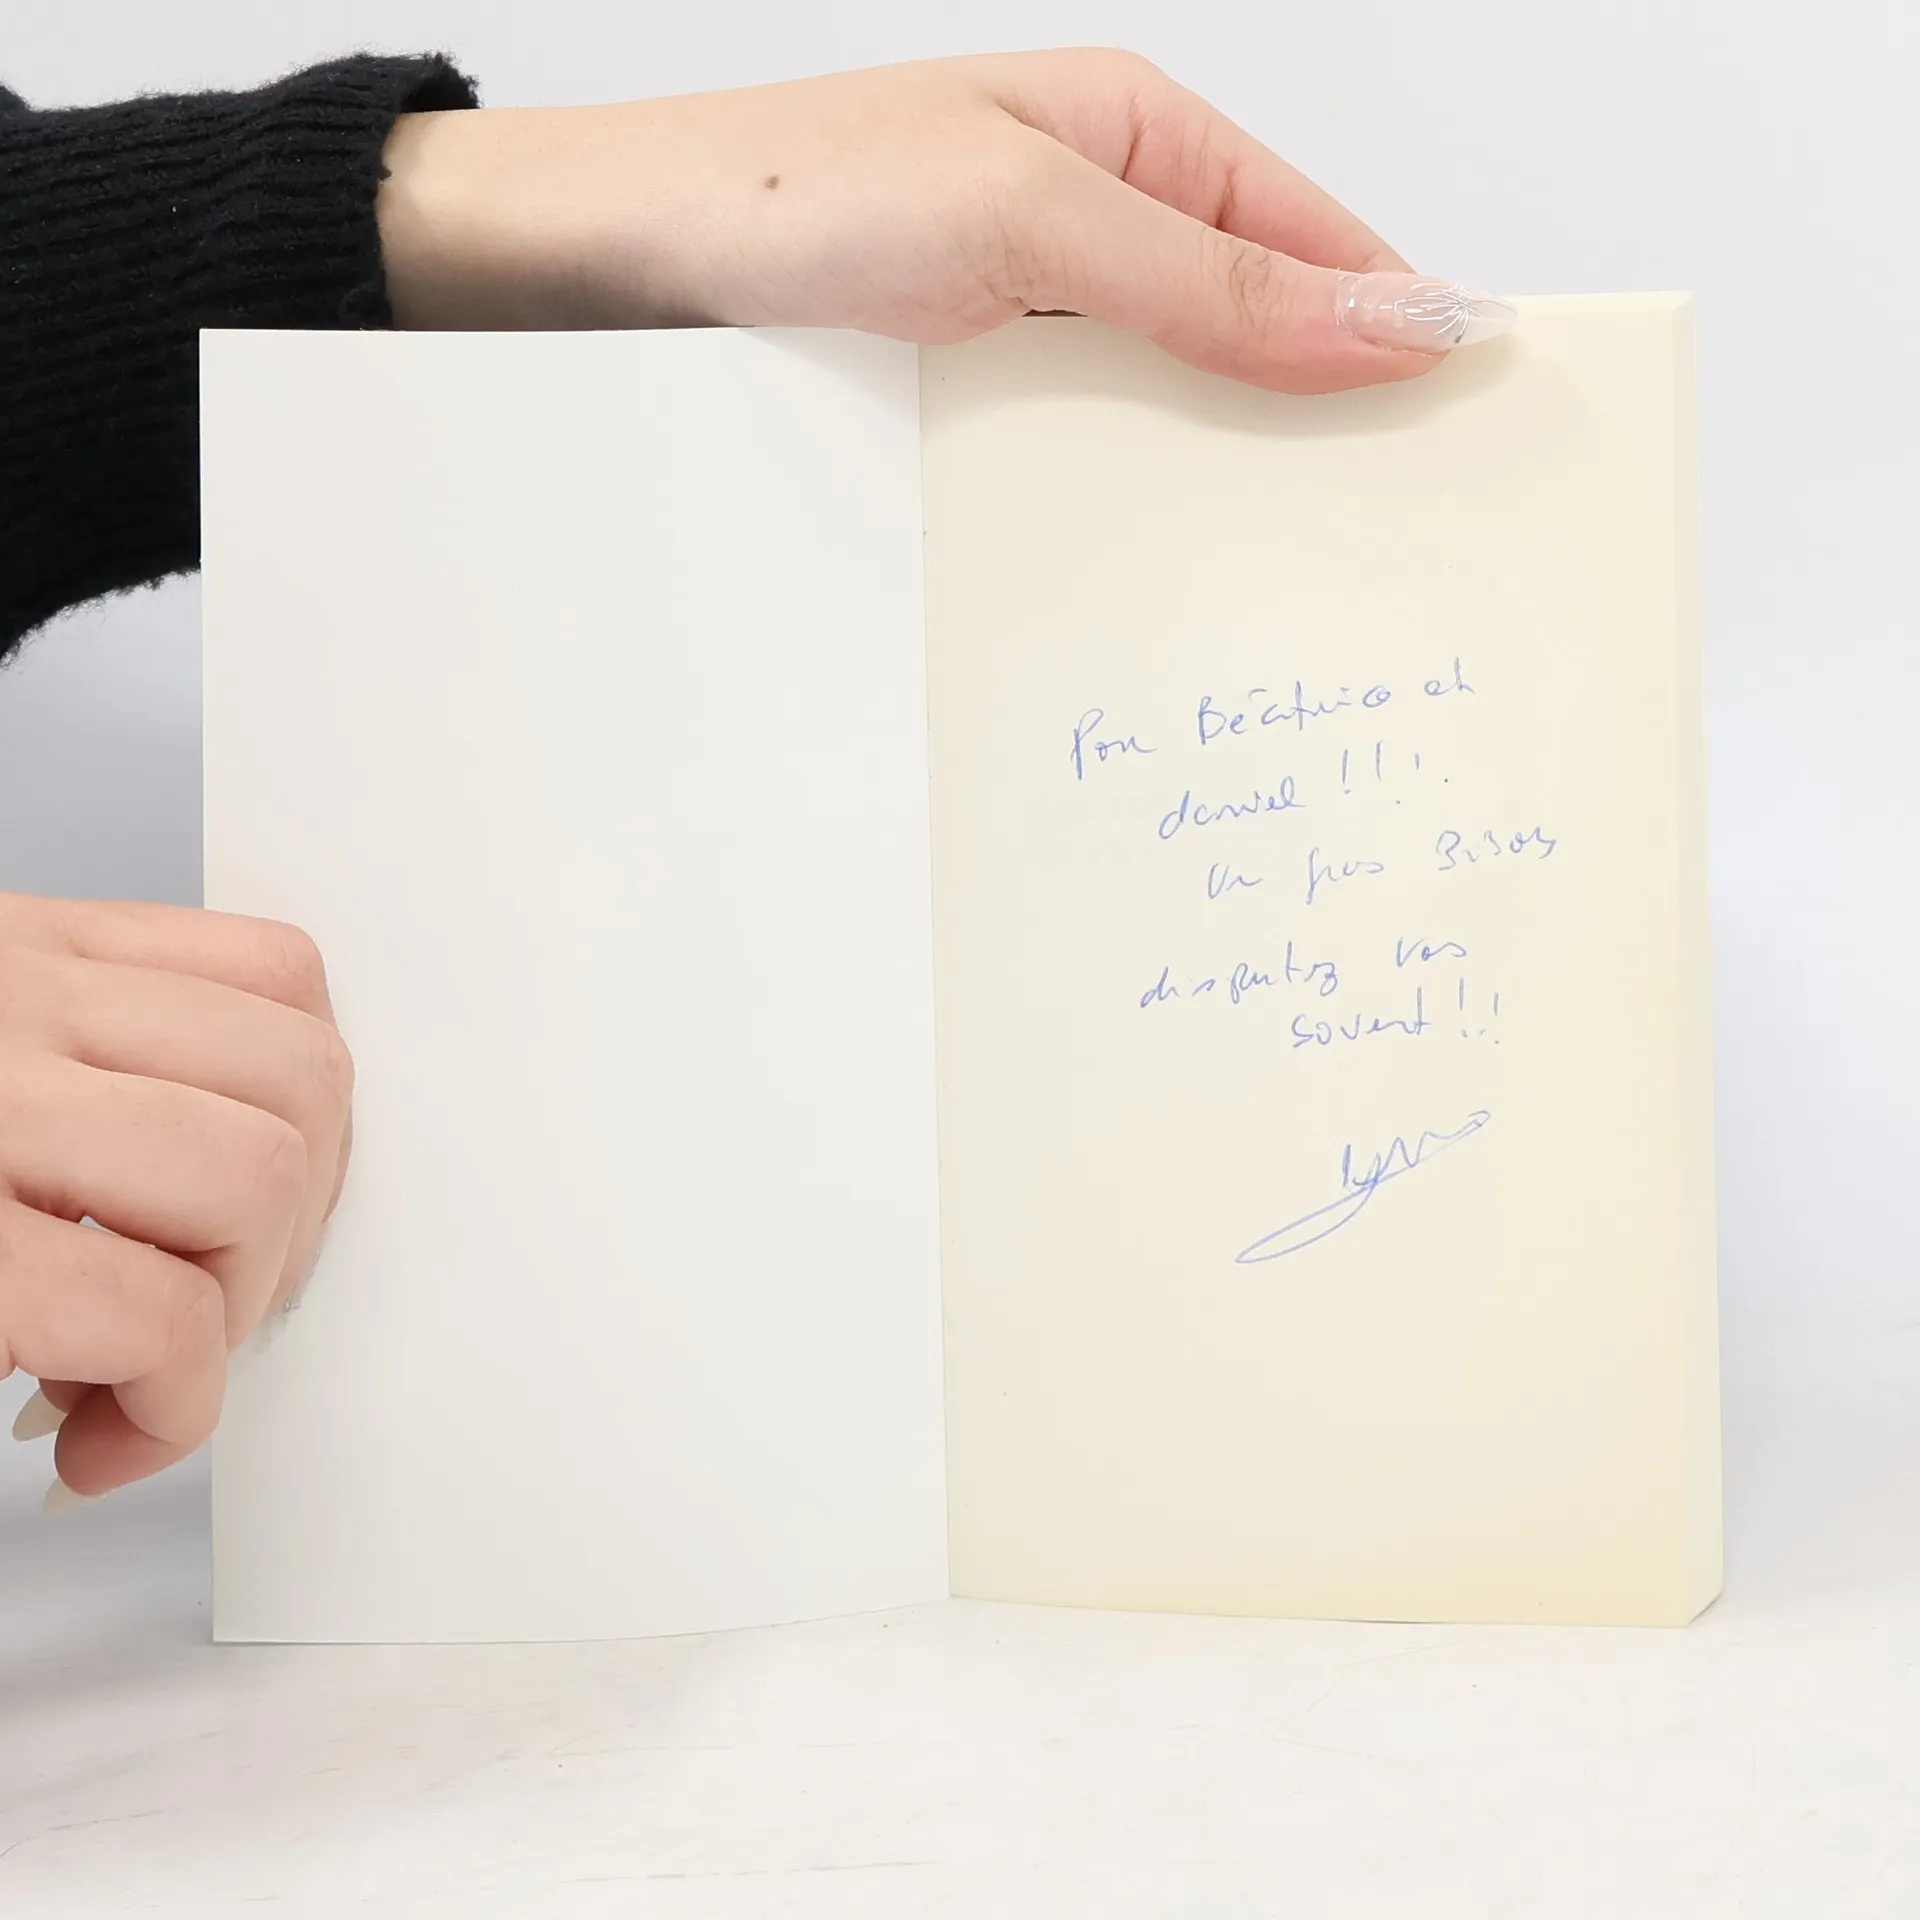 Pour Béatrice et
daniel !!!
Un gros Bisous
disputez vos
sovent !!